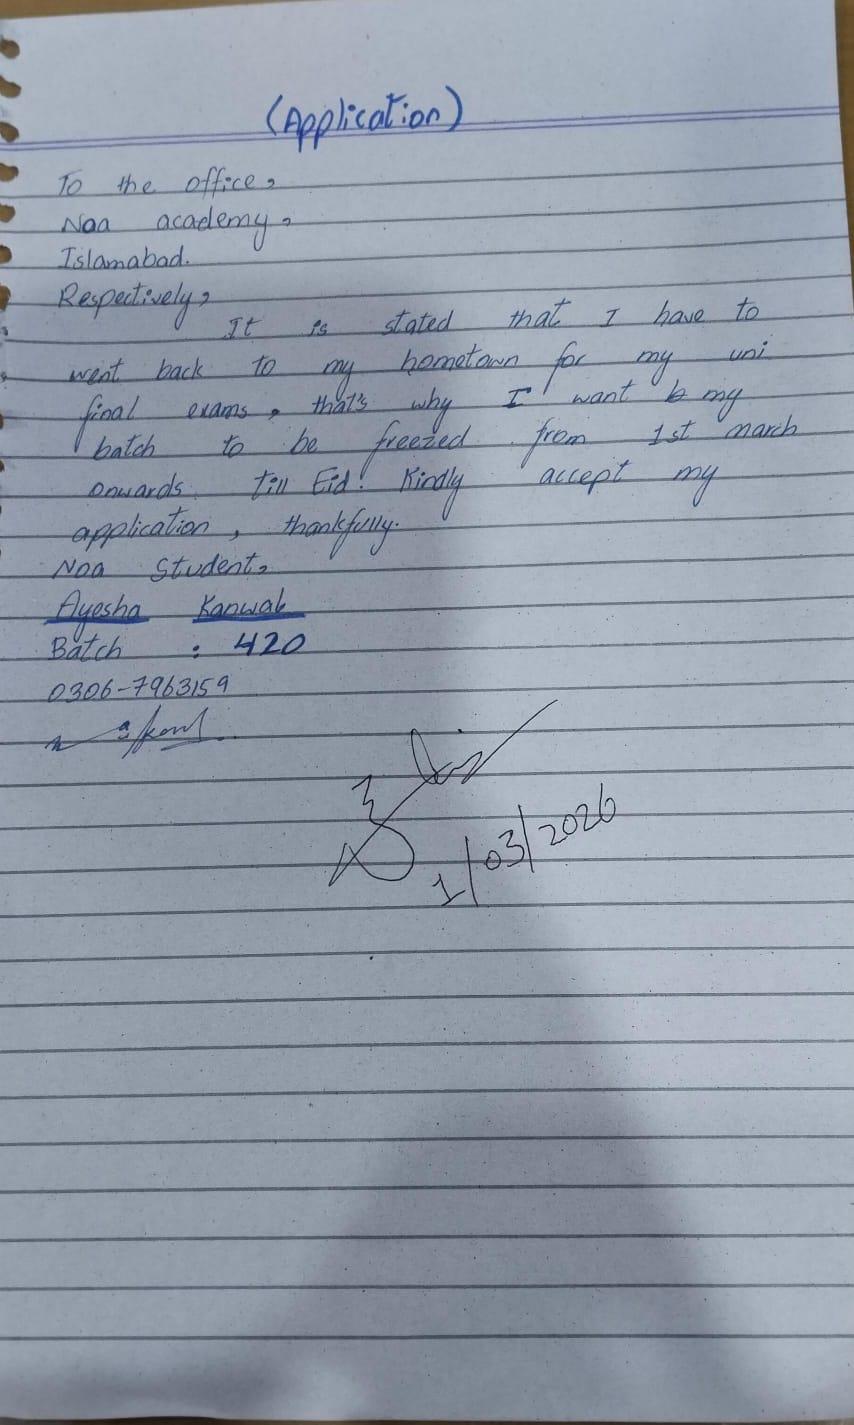 (Application)
To the office,
Noa academy,
Islamabad.
Respectively,
It is stated that I have to
went back to my hometown for my uni
final exams, that's why I want my
batch to be freezed from 1st march
onwards till Eid! Kindly accept my
application, thankfully.
Noa Student,
Ayesha Kanwal
Batch : 420
0306-7963159
1/03/2026